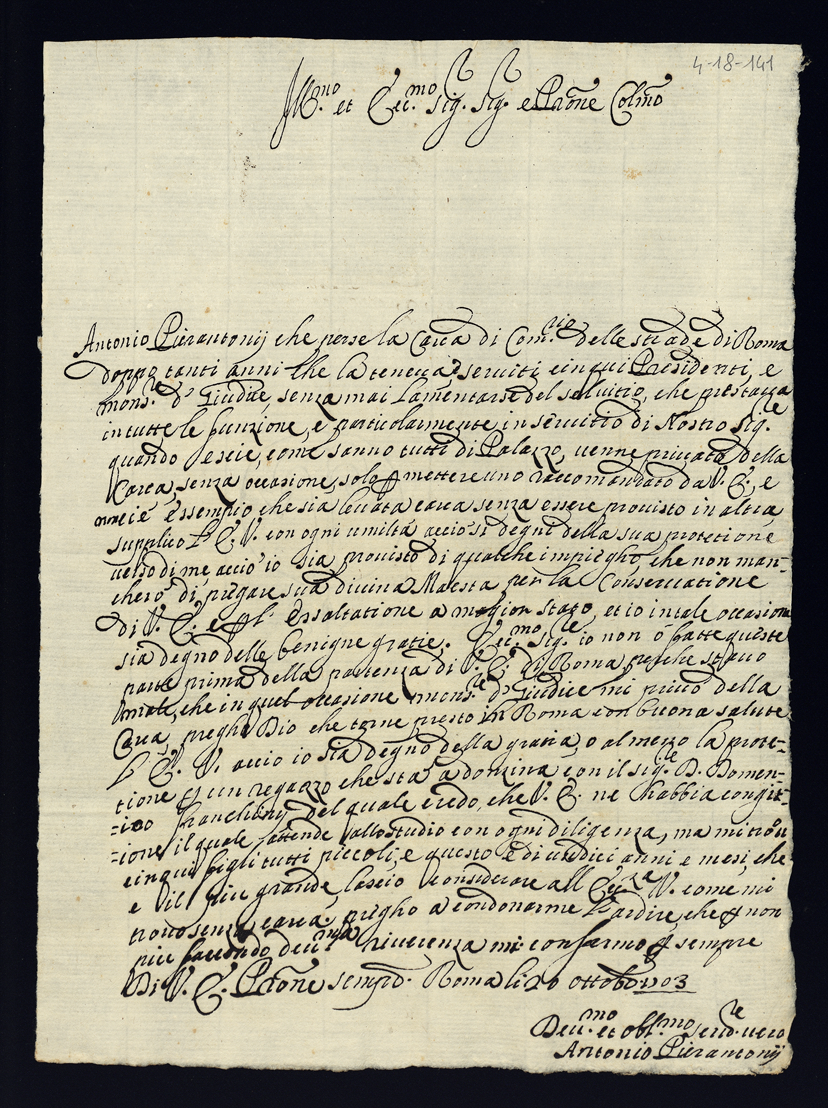 4-18-141
Ill.mo et Ecc.mo Sig. Sig. e Pa͠rone Colm͠o
Antonio Pierantonij che perse la Carca di Com.rio delle strade di Roma
doppo tanti anni che la teneva serviti cinqui Presidenti, e
Mons.re d' Giudice, senza mai lamentarse del servitio, che prestava
in tutte le funzione, e particolarmente in servitio di Nostro Sig.re
quando escie, come sanno tutti di Palazzo, venne privato della
Carca, senza occasione, solo p mettere uno raccomandato da V. E., e
non c'è essempio che sia levata carca senza essere provisto in altra
supplico L' E. V. con ogni umiltà acciò si degni della sua protetione
verso di me acciò io sia provisto di qualche impiegho, che non man-
cherò di pregare sua divina Maestà per la Conservatione
di V. E. e p l' essaltatione a magior stato, et io in tale occasione
sia degno delle benigne gratie. Ecc.mo Sig.re io non ò fatte queste
parte prima della partenza di V. E. di Roma perche stavo
male, che in quel occasione Mons.re d' Giudice mi privò della
Carca, pregho Dio che torne presto in Roma con buona salute
L' E. V. acciò io sia degno della gratia, o almezo la prote-
tione es un regazzo che stà a dozina con il sig.e D. Domen-
=ico Franchinij del quale credo, che V. E. ne habbia cognit-
=ione il quale attende allo studio con ogni diligenza, ma mi trovo
cinqui figli tutti piccoli, e questo è di undici anni e mesi, che
e il piu grande, lascio considerare all' Ecc.za V. come mi
trovo senza carca, pregho a condonarme l' ardire, che p non
piu facendo dev.ma riverenza mi confarmo p sempre
Di V. E. Pa͠rone semp͠r. Roma li 20 ottob. 1703
Dev.mo et obl.mo serv.re vero
Antonio Pierantonij